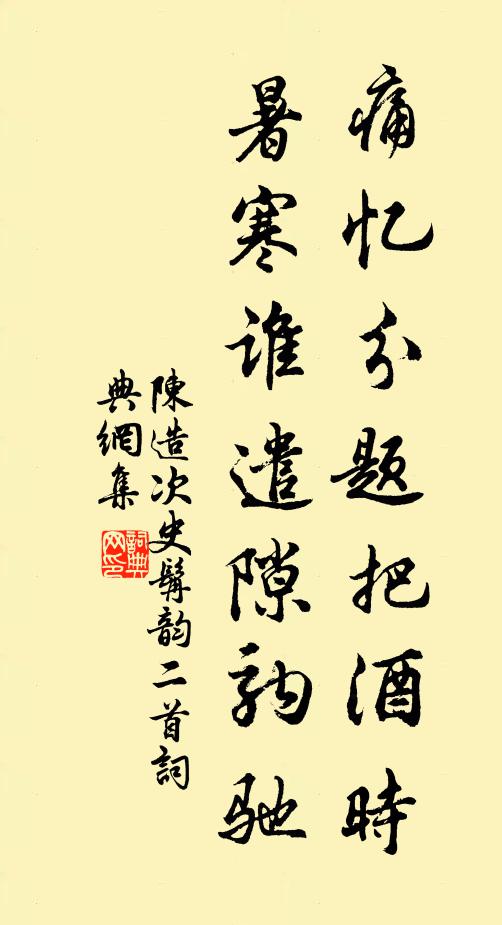 痛忆分题把酒时
暑寒谁遣隙驹驰
陳造次史髯韵二首詞
典網集
詞典
网印